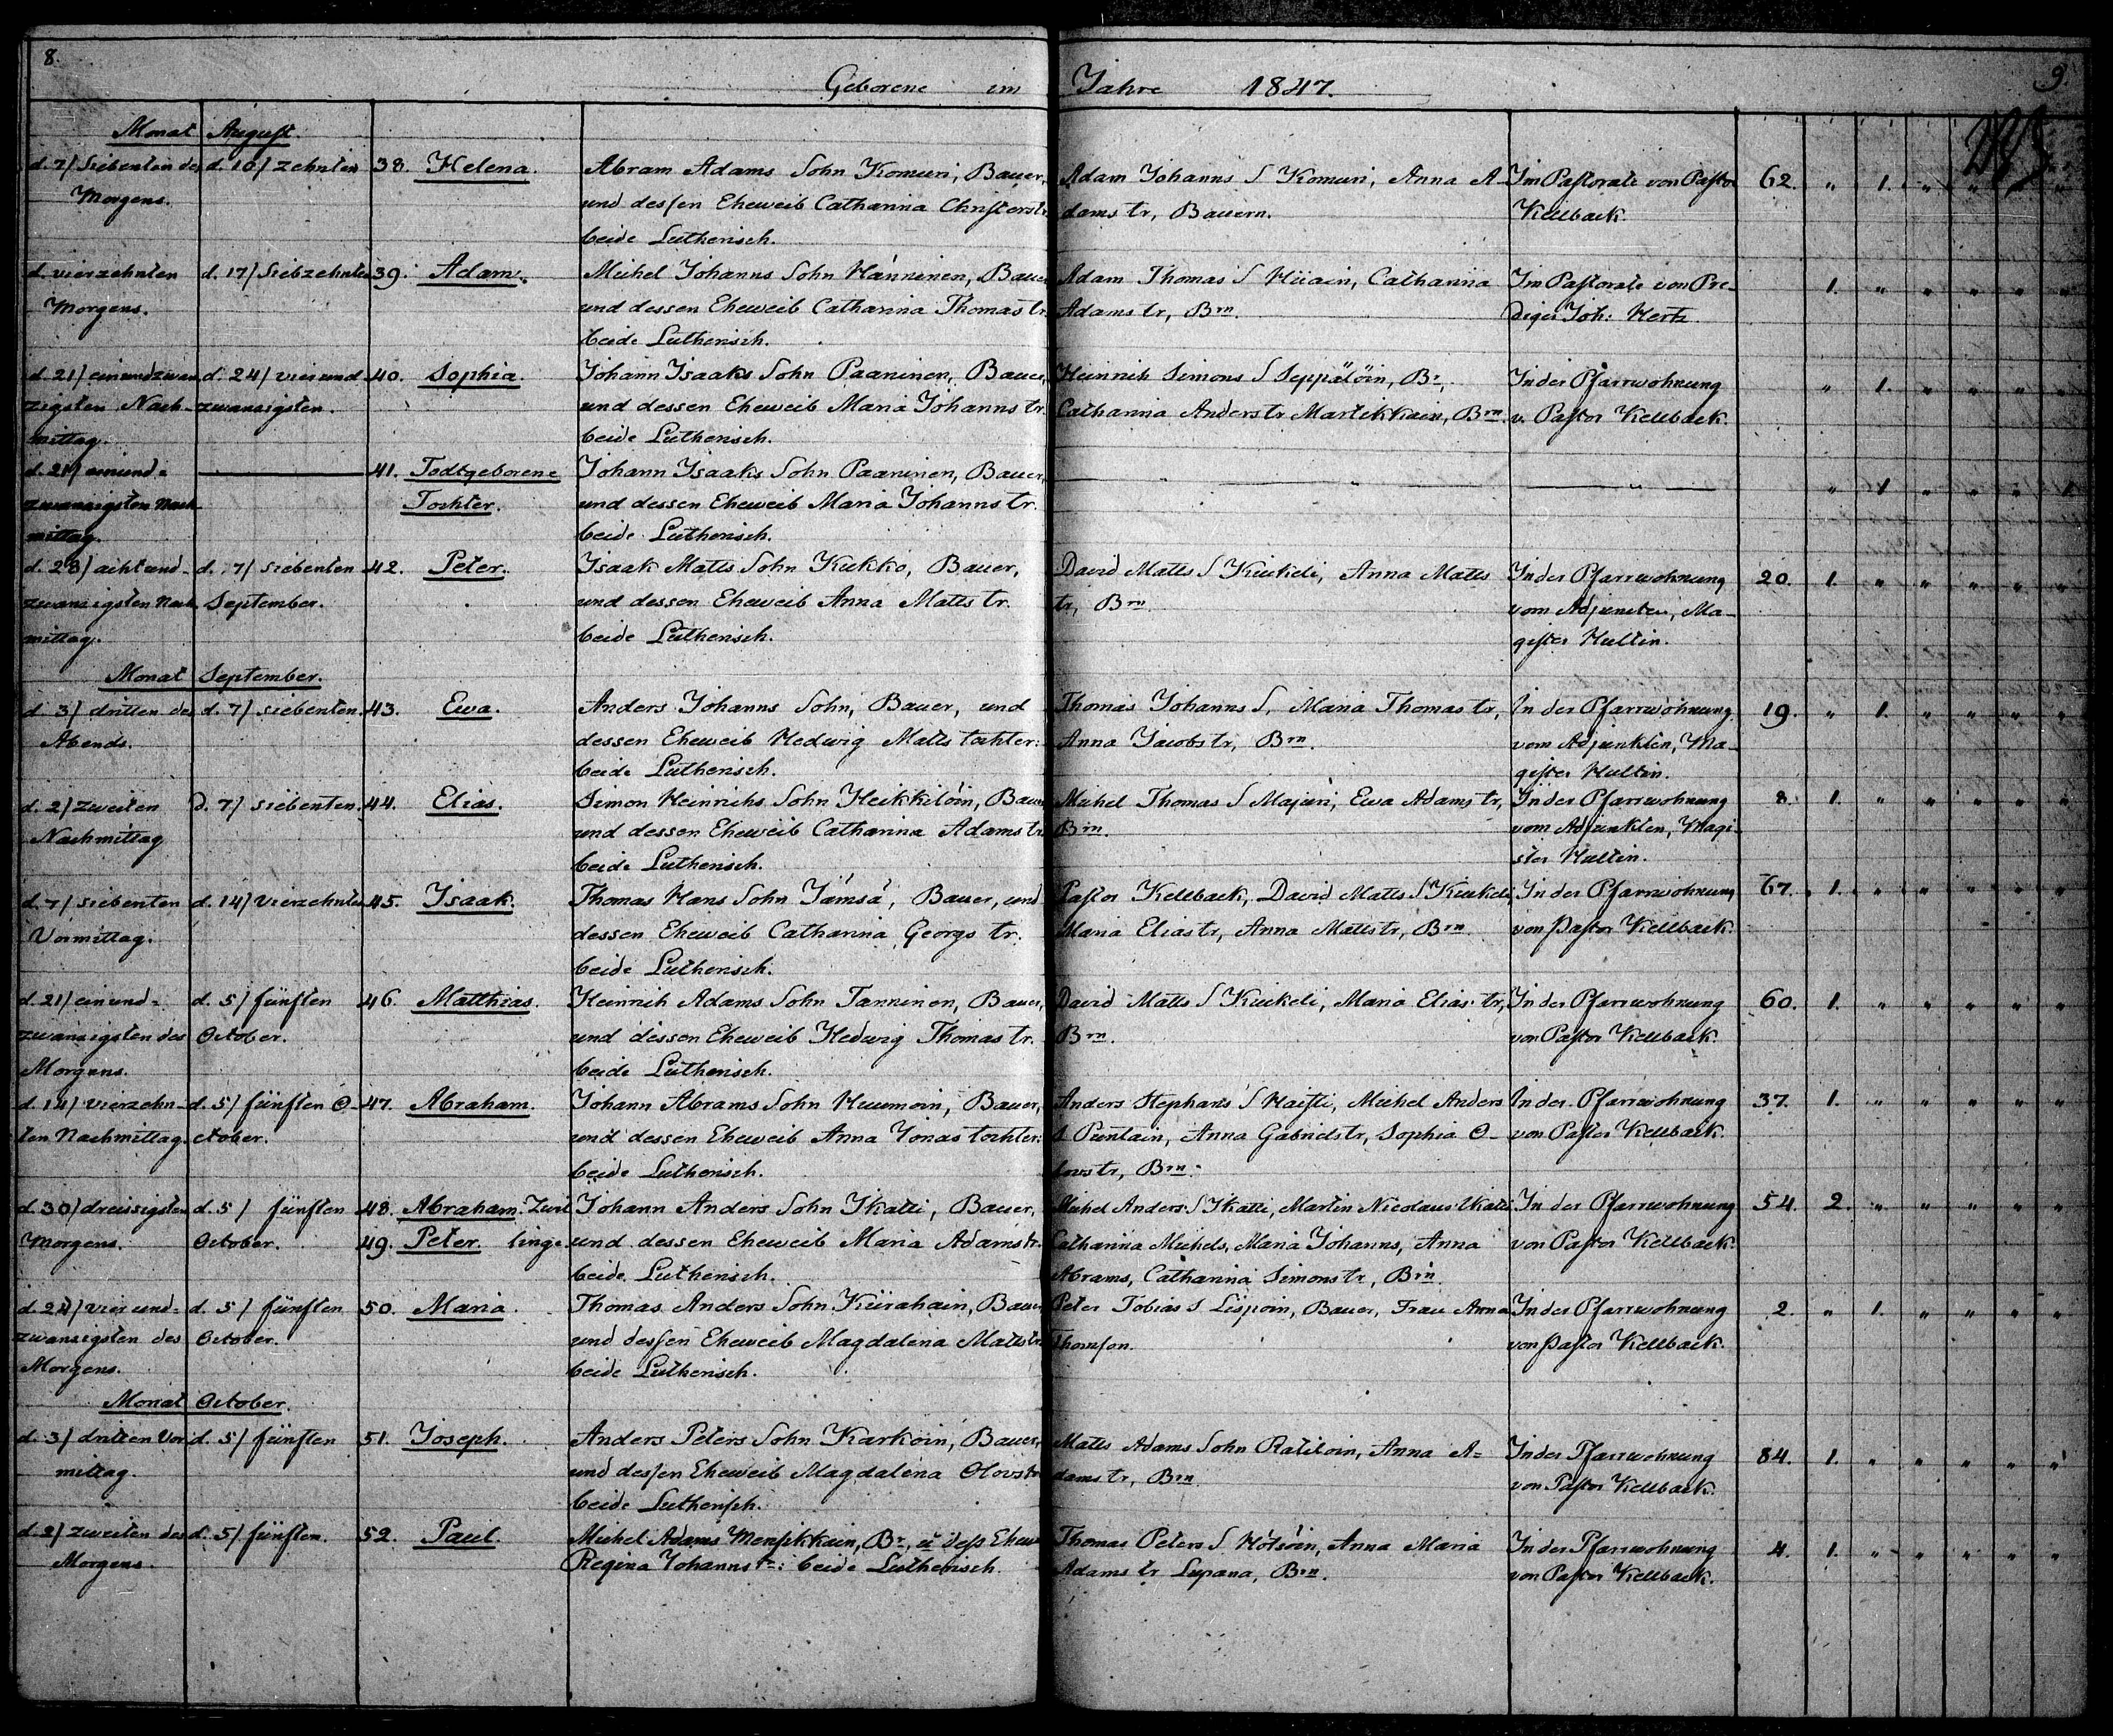 8.
Geborene im Jahre 1847.
9.
Monat August.
d. 7/ Siebenten des d. 10/ zehnten 38. Helena. Abram Adams Sohn Komuri, Bauer, Adam Johanns S Komuri, Anna A- Im Pastorate von Pastor 62. " 1. " " " "
Morgens. und dessen Eheweib Catharina Christerstr. dams tr, Bauern. Kellback.
beide Lutherisch.
d. vierzehnten d. 17/ Siebzehnten 39. Adam. Michel Johanns Sohn Hänninen, Bauer Adam Thomas S Hüain, Catharina Im Pastorate von Pre- 1. " " " " "
Morgens. und dessen Eheweib Catharina Thomas tr. Adams tr, Brn. diger Joh: Hertz.
beide Lutherisch.
d. 21/ einundzwan- d. 24/ vierund- 40. Sophia. Johann Isaaks Sohn Paaninen, Bauer, Heinrich Simons S Seppäläin, Br., In der Pfarrwohnung " 1. " " " "
zigsten Nach- zwanzigsten. und dessen Eheweib Maria Johanns tr. Catharina Anders tr Martikkain, Brn. v. Pastor Kellback.
mittag. beide Lutherisch.
d. 21/ einund- 41. Todtgeborene Johann Isaaks Sohn Paaninen, Bauer, " " 1 " " " 1
zwanzigsten Nach- Tochter. und dessen Eheweib Maria Johanns tr.
mittag. beide Lutherisch.
d. 28/ achtund- d. 7/ siebenten 42. Peter. Isaak Matts Sohn Kukko, Bauer, David Matts S Kiukeli, Anna Matts In der Pfarrwohnung 20. 1. " " " " "
zwanzigsten Nach- September. und dessen Eheweib Anna Matts tr. tr, Brn. vom Adjuncten, Ma-
mittag. beide Lutherisch. gister Hultin.
Monat September.
d. 3/ dritten des d. 7/ siebenten. 43. Ewa. Anders Johanns Sohn, Bauer, und Thomas Johanns S, Maria Thomas tr, In der Pfarrwohnung 19. " 1. " " " "
Abends. dessen Eheweib Hedwig Matts tochter: Anna Jacobs tr, Brn. vom Adjunkten, Ma-
beide Lutherisch. gister Hultin.
d. 2/ zweiten d. 7/ siebenten. 44. Elias. Simon Heinrichs Sohn Heikkiläin, Bauer Michel Thomas S Majuri, Ewa Adams tr, In der Pfarrwohnung 8. 1. " " " " "
Nachmittag und dessen Eheweib Catharina Adams tr. Brn. vom Adjunkten, Magi-
beide Lutherisch. ster Hultin.
d. 7/ siebenten d. 14/ vierzehnten 45. Isaak. Thomas Hans Sohn Jämsä, Bauer, und Pastor Kellback, David Matts S Kiukeli, In der Pfarrwohnung 67. 1. " " " " "
Vormittag. dessen Eheweib Catharina Georgs tr. Maria Elias tr, Anna Matts tr, Brn. von Pastor Kellback.
beide Lutherisch.
d. 21/ einund- d. 5/ fünften 46. Matthias. Heinrich Adams Sohn Tanninen, Bauer, David Matts S Kiukeli, Maria Elias tr, In der Pfarrwohnung 60. 1. " " " " "
zwanzigsten des October. und dessen Eheweib Hedwig Thomas tr. Brn. von Pastor Kellback.
Morgens. beide Lutherisch.
d. 14/ vierzehn- d. 5/ fünften O- 47. Abraham. Johann Abrams Sohn Huumoin, Bauer, Anders Stephans S Haisti, Michel Anders In der Pfarrwohnung 37. 1. " " " " "
ten Nachmittag. ctober. und dessen Eheweib Anna Jonas tochter: S Puntain, Anna Gabriels tr, Sophia O- von Pastor Kellback.
beide Lutherisch. lovs tr, Brn.
d. 30/ dreissigsten d. 5/ fünften 48. Abraham. Zwil Johann Anders Sohn Ikatti, Bauer, Michel Anders S Ikatti, Martin Nicolaus Ikatti, In der Pfarrwohnung 54. 2. " " " " "
Morgens. October. 49. Peter linge und dessen Eheweib Maria Adams tr. Catharina Michels, Maria Johanns, Anna von Pastor Kellback.
beide Lutherisch. Abrams, Catharina Simons tr, Brn.
d. 24/ vierund- d. 5/ fünften 50. Maria. Thomas Anders Sohn Kürahain, Bauer Peter Tobias S Lispoin, Bauer, Frau Anna In der Pfarrwohnung 2. " 1. " " " "
zwanzigsten des October. und dessen Eheweib Magdalena Matts tr. Thomson. von Pastor Kellback.
Morgens. beide Lutherisch.
Monat October.
d. 3/ dritten Vor- d. 5/ fünften 51. Joseph. Anders Peters Sohn Karkoin, Bauer, Matts Adams Sohn Ratiloin, Anna A- In der Pfarrwohnung 84. 1. " " " " "
mittag. und dessen Eheweib Magdalena Olovs tr dams tr, Brn. von Pastor Kellback.
beide Lutherisch.
d. 2/ zweiten des d. 5/ fünften. 52. Paul. Michel Adams Mensikkain, Br., u dess Ehew Thomas Peters S Hötöin, Anna Maria In der Pfarrwohnung 4. 1. " " " " "
Morgens. Regina Johanns tr: beide Lutherisch. Adams tr Lupana, Brn. von Pastor Kellback.